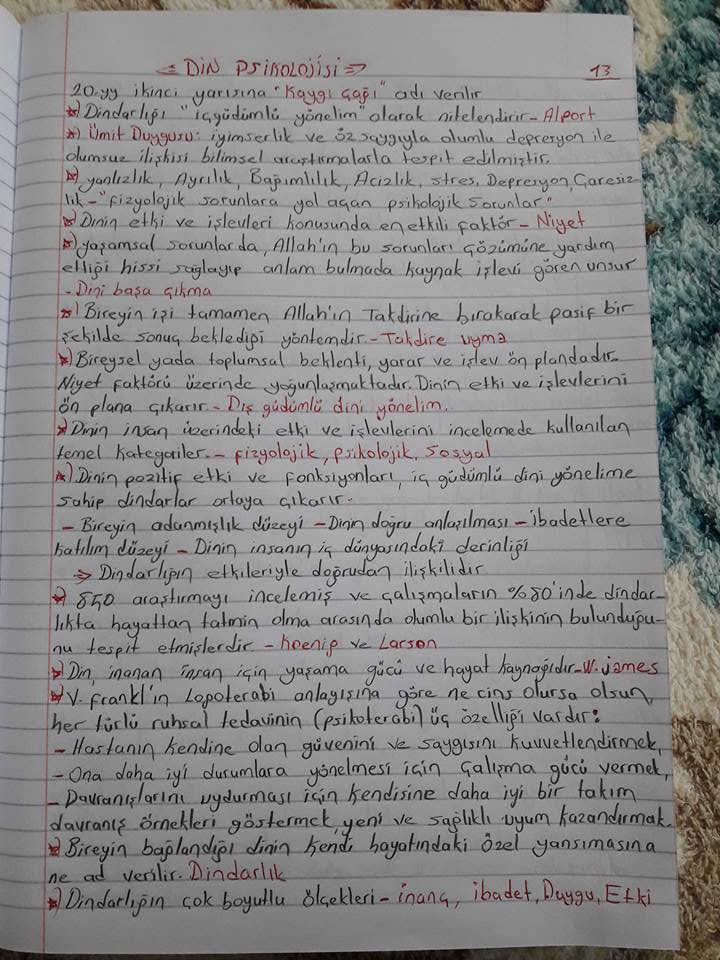 DİN PSİKOLOJİSİ 13
20.yy ikinci yarısına "Kaygı Çağı" adı verilir
*) Dindarlığı "içgüdümlü yönelim" olarak nitelendirir - Alport
*) Ümit Duygusu: iyimserlik ve öz saygıyla olumlu depresyon ile
olumsuz ilişkisi bilimsel araştırmalarla tespit edilmiştir.
*) yanlızlık, Ayrılık, Bağımlılık, Acizlik, stres, Depresyon, Çaresiz-
lik - "fizyolojik sorunlara yol açan psikolojik sorunlar"
*) Dinin etki ve işlevleri konusunda en etkili faktör - Niyet
*) yaşamsal sorunlarda, Allah'ın bu sorunları çözümüne yardım
ettiği hissi sağlayıp anlam bulmada kaynak işlevi gören unsur
- Dini başa çıkma
*) Bireyin işi tamamen Allah'ın Takdirine bırakarak pasif bir
şekilde sonuç beklediği yöntemdir. - Takdire uyma
*) Bireysel yada toplumsal beklenti, yarar ve işlev ön plandadır.
Niyet faktörü üzerinde yoğunlaşmaktadır. Dinin etki ve işlevlerini
ön plana çıkarır. - Dış güdümlü dini yönelim.
*) Dinin insan üzerindeki etki ve işlevlerini incelemede kullanılan
temel kategoriler. - fizyolojik, psikolojik, sosyal
*) Dinin pozitif etki ve fonksiyonları, iç güdümlü dini yönelime
sahip dindarlar ortaya çıkarır.
- Bireyin adanmışlık düzeyi - Dinin doğru anlaşılması - ibadetlere
katılım düzeyi - Dinin insanın iç dünyasındaki derinliği
⇒ Dindarlığın etkileriyle doğrudan ilişkilidir
*) 850 araştırmayı incelemiş ve çalışmaların %80'inde dindar-
lıkta hayattan tatmin olma arasında olumlu bir ilişkinin bulunduğu-
nu tespit etmişlerdir - Koenig ve Larson
*) Din, inanan insan için yaşama gücü ve hayat kaynağıdır - W. James
*) V. Frankl'ın Logoterabi anlayışına göre ne cins olursa olsun,
her türlü ruhsal tedavinin (psikoterabi) üç özelliği vardır:
- Hastanın kendine olan güvenini ve saygısını kuvvetlendirmek,
- Ona daha iyi durumlara yönelmesi için çalışma gücü vermek,
- Davranışlarını uydurması için kendisine daha iyi bir takım
davranış örnekleri göstermek, yeni ve sağlıklı uyum kazandırmak.
*) Bireyin bağlandığı dinin kendi hayatındaki özel yansımasına
ne ad verilir. Dindarlık
*) Dindarlığın çok boyutlu ölçekleri - inanç, ibadet, Duygu, Etki